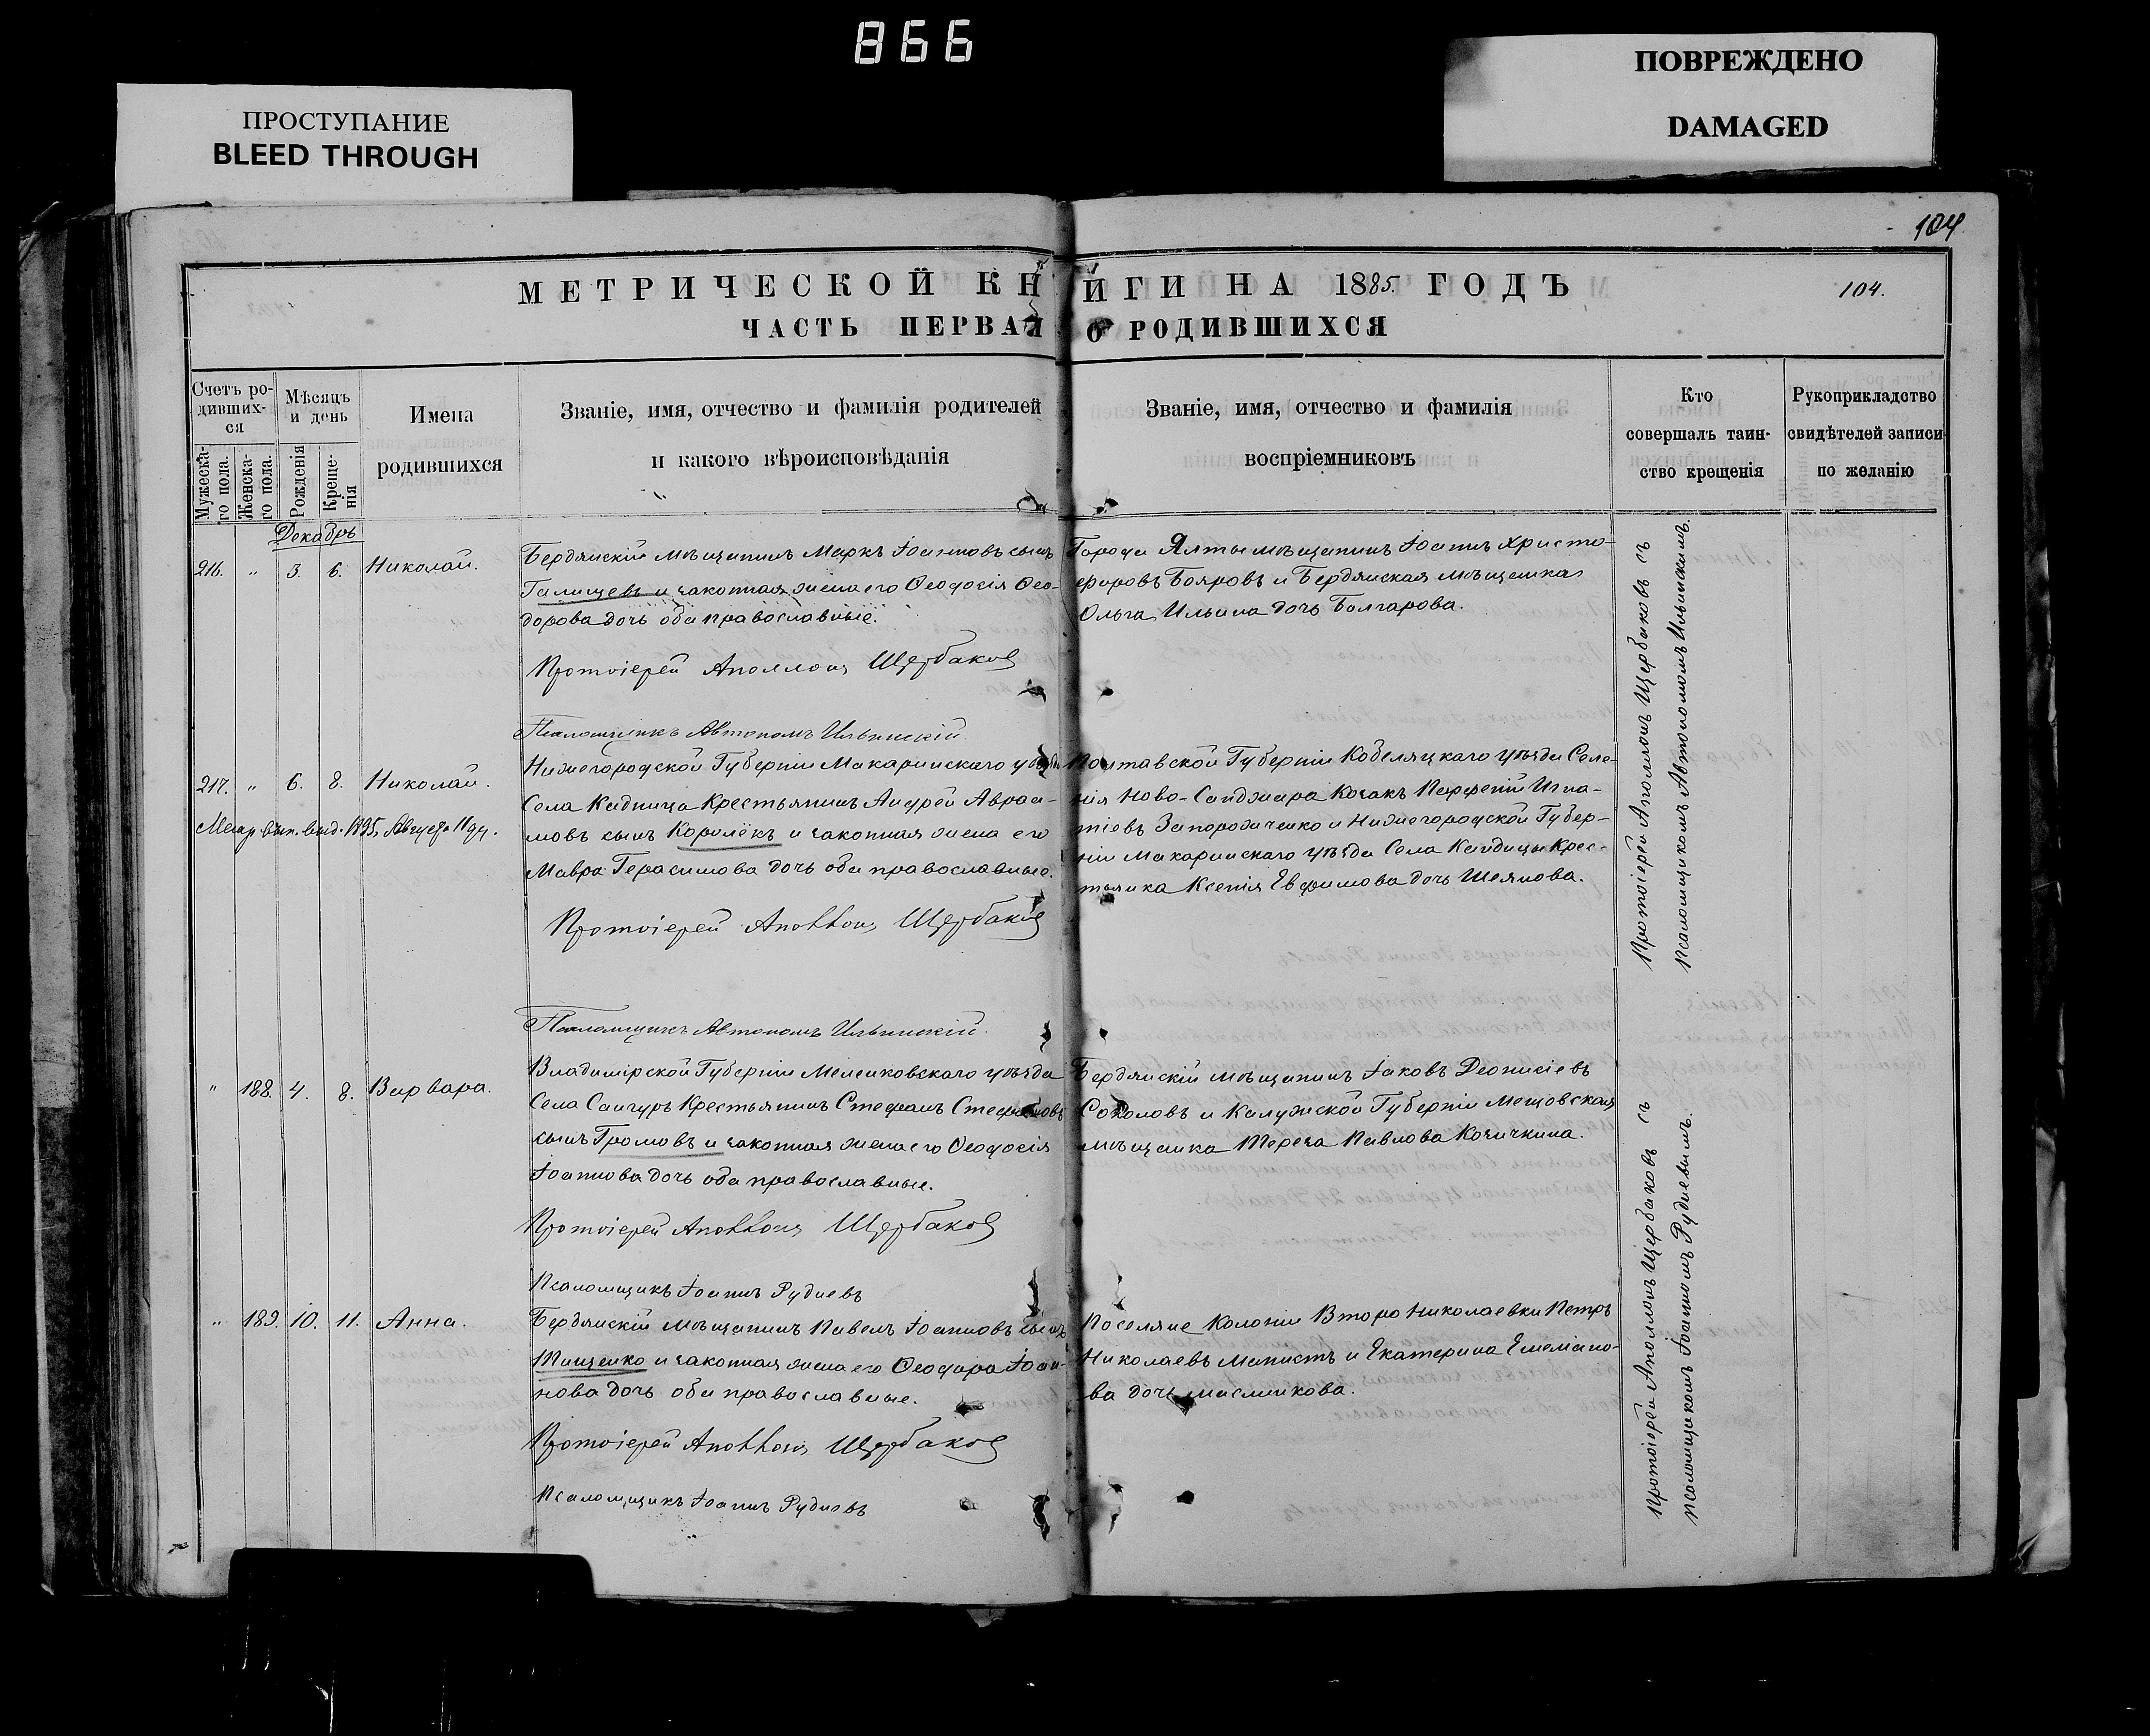 866
ПРОСТУПАНИЕ
BLEED THROUGH
ПОВРЕЖДЕНО
DAMAGED
104
МЕТРИЧЕСКОЙ КНИГИ НА 1885. ГОДЪ
104.
ЧАСТЬ ПЕРВАЯ О РОДИВШИХСЯ
Счетъ ро-
дивших-
ся
Мужеска-
го пола.
Женска-
го пола.
Мѣсяцъ
и день
Рожденія
Креще-
нія
Имена
родившихся
Званіе, имя, отчество и фамилія родителей
и какого вѣроисповѣданія
Званіе, имя, отчество и фамилія
воспріемниковъ
Кто
совершалъ таин-
ство крещенія
Рукоприкладство
свидѣтелей записи
по желанію
Декабрь
216. " 3. 6. Николай.
Бердянскій мѣщанинъ Маркъ Іоанновъ сынъ
Галищевъ и законная жена его Ѳеодосія Ѳео-
дорова дочь оба православные.
Протоіерей Аполлонъ Щербаковъ
Псаломщикъ Автономъ Ильинскій.
Города Ялты мѣщанинъ Іоаннъ Христо-
форовъ Бояровъ и Бердянская мѣщанка
Ольга Ильина дочь Болгарова.
217. " 6. 8. Николай.
Метр. вып. выд. 1895, Августа 11 дн.
Нижегородской Губерніи Макарьинскаго уѣзда
Села Кадница Крестьянинъ Андрей Авраа-
мовъ сынъ Королёкъ и законная жена его
Мавра Герасимова дочь оба православные.
Протоіерей Аполлонъ Щербаковъ
Псаломщикъ Автономъ Ильинскій.
Полтавской Губерніи Кобеляцкаго уѣзда Селе-
нія Ново-Санджара Козакъ Парфеній Игна-
тіевъ Запорожченко и Нижегородской Губер-
ніи Макарьинскаго уѣзда Села Кандицы Крес-
тьянка Ксенія Евфимова дочь Шелянова.
Протоіерей Аполлонъ Щербаковъ съ
Псаломщикомъ Автономомъ Ильинскимъ.
" 188. 4. 8. Варвара.
Владимірской Губерніи Меленковскаго уѣзда
Села Сангуръ Крестьянинъ Стефанъ Стефановъ
сынъ Громовъ и законная жена его Ѳеодосія
Іоаннова дочь оба православные.
Протоіерей Аполлонъ Щербаковъ
Псаломщикъ Іоаннъ Рудневъ
Бердянскій мѣщанинъ Іаковъ Деонисіевъ
Соколовъ и Калужской Губерніи Мещовская
мѣщанка Тереза Павлова Козичкина.
" 189. 10. 11. Анна.
Бердянскій мѣщанинъ Павелъ Іоанновъ сынъ
Тищенко и законная жена его Ѳеодора Іоан-
нова дочь оба православные.
Протоіерей Аполлонъ Щербаковъ
Псаломщикъ Іоаннъ Рудневъ
Поселяне Колоніи Второ Николаевки Петръ
Николаевъ и Екатерина Емеліано-
ва дочь Масликова.
Протоіерей Аполлонъ Щербаковъ съ
Псаломщикомъ Іоанномъ Рудневымъ.